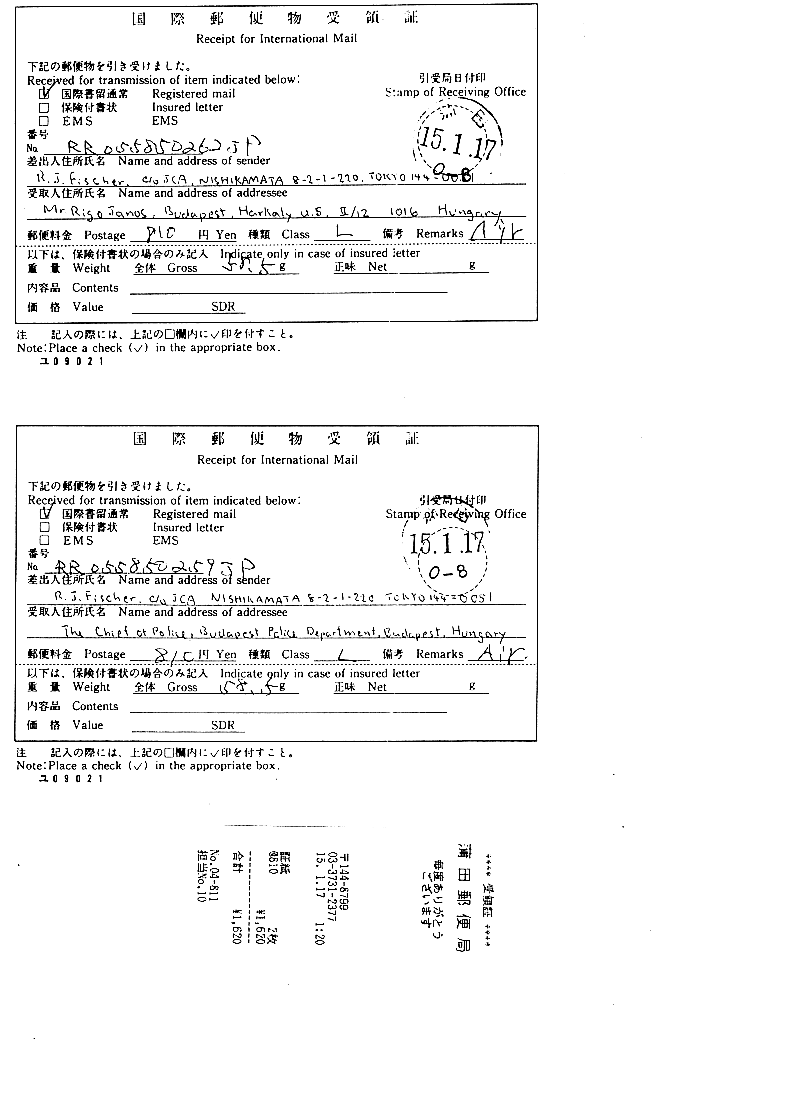 国際郵便物受領証
Receipt for International Mail
下記の郵便物を引き受けました。
Received for transmission of item indicated below:
引受局日付印
Stamp of Receiving Office
国際書留通常 Registered mail
保険付書状 Insured letter
EMS EMS
15.1.17
番号
No RR 055850262 JP
差出人住所氏名 Name and address of sender
R.J. Fischer, c/o JCA, NISHIKAMATA 8-2-1-220, TOKYO 144-
受取人住所氏名 Name and address of addressee
Mr Rigo Janos, Budapest, Harkaly U.5. II/12 1016 Hungary
郵便料金 Postage 810 円 Yen 種類 Class L 備考 Remarks Air
以下は、保険付書状の場合のみ記入 Indicate only in case of insured letter
重量 Weight 全体 Gross 58.5 g 正味 Net g
内容品 Contents
価格 Value SDR
注 記入の際には、上記の□欄内に✓印を付すこと。
Note: Place a check (✓) in the appropriate box.
ユ09021
国際郵便物受領証
Receipt for International Mail
下記の郵便物を引き受けました。
Received for transmission of item indicated below:
引受局日付印
Stamp of Receiving Office
国際書留通常 Registered mail
保険付書状 Insured letter
EMS EMS
15.1.17
0-8
番号
No RR 055850259 JP
差出人住所氏名 Name and address of sender
R.J. Fischer, c/o JCA NISHIKAMATA 8-2-1-220 TOKYO 144-0051
受取人住所氏名 Name and address of addressee
The Chief of Police, Budapest Police Department, Budapest, Hungary
郵便料金 Postage 810 円 Yen 種類 Class L 備考 Remarks Air.
以下は、保険付書状の場合のみ記入 Indicate only in case of insured letter
重量 Weight 全体 Gross 58.5 g 正味 Net g
内容品 Contents
価格 Value SDR
注 記入の際には、上記の□欄内に✓印を付すこと。
Note: Place a check (✓) in the appropriate box.
ユ09021
**** 受領証 ****
蒲田郵便局
毎度ありがとう
ございます
〒144-8799
03-3731-2377
15. 1.17 1:20
証紙 2枚
@810 ¥1,620
合計 ¥1,620
No.04-811
担当No.10